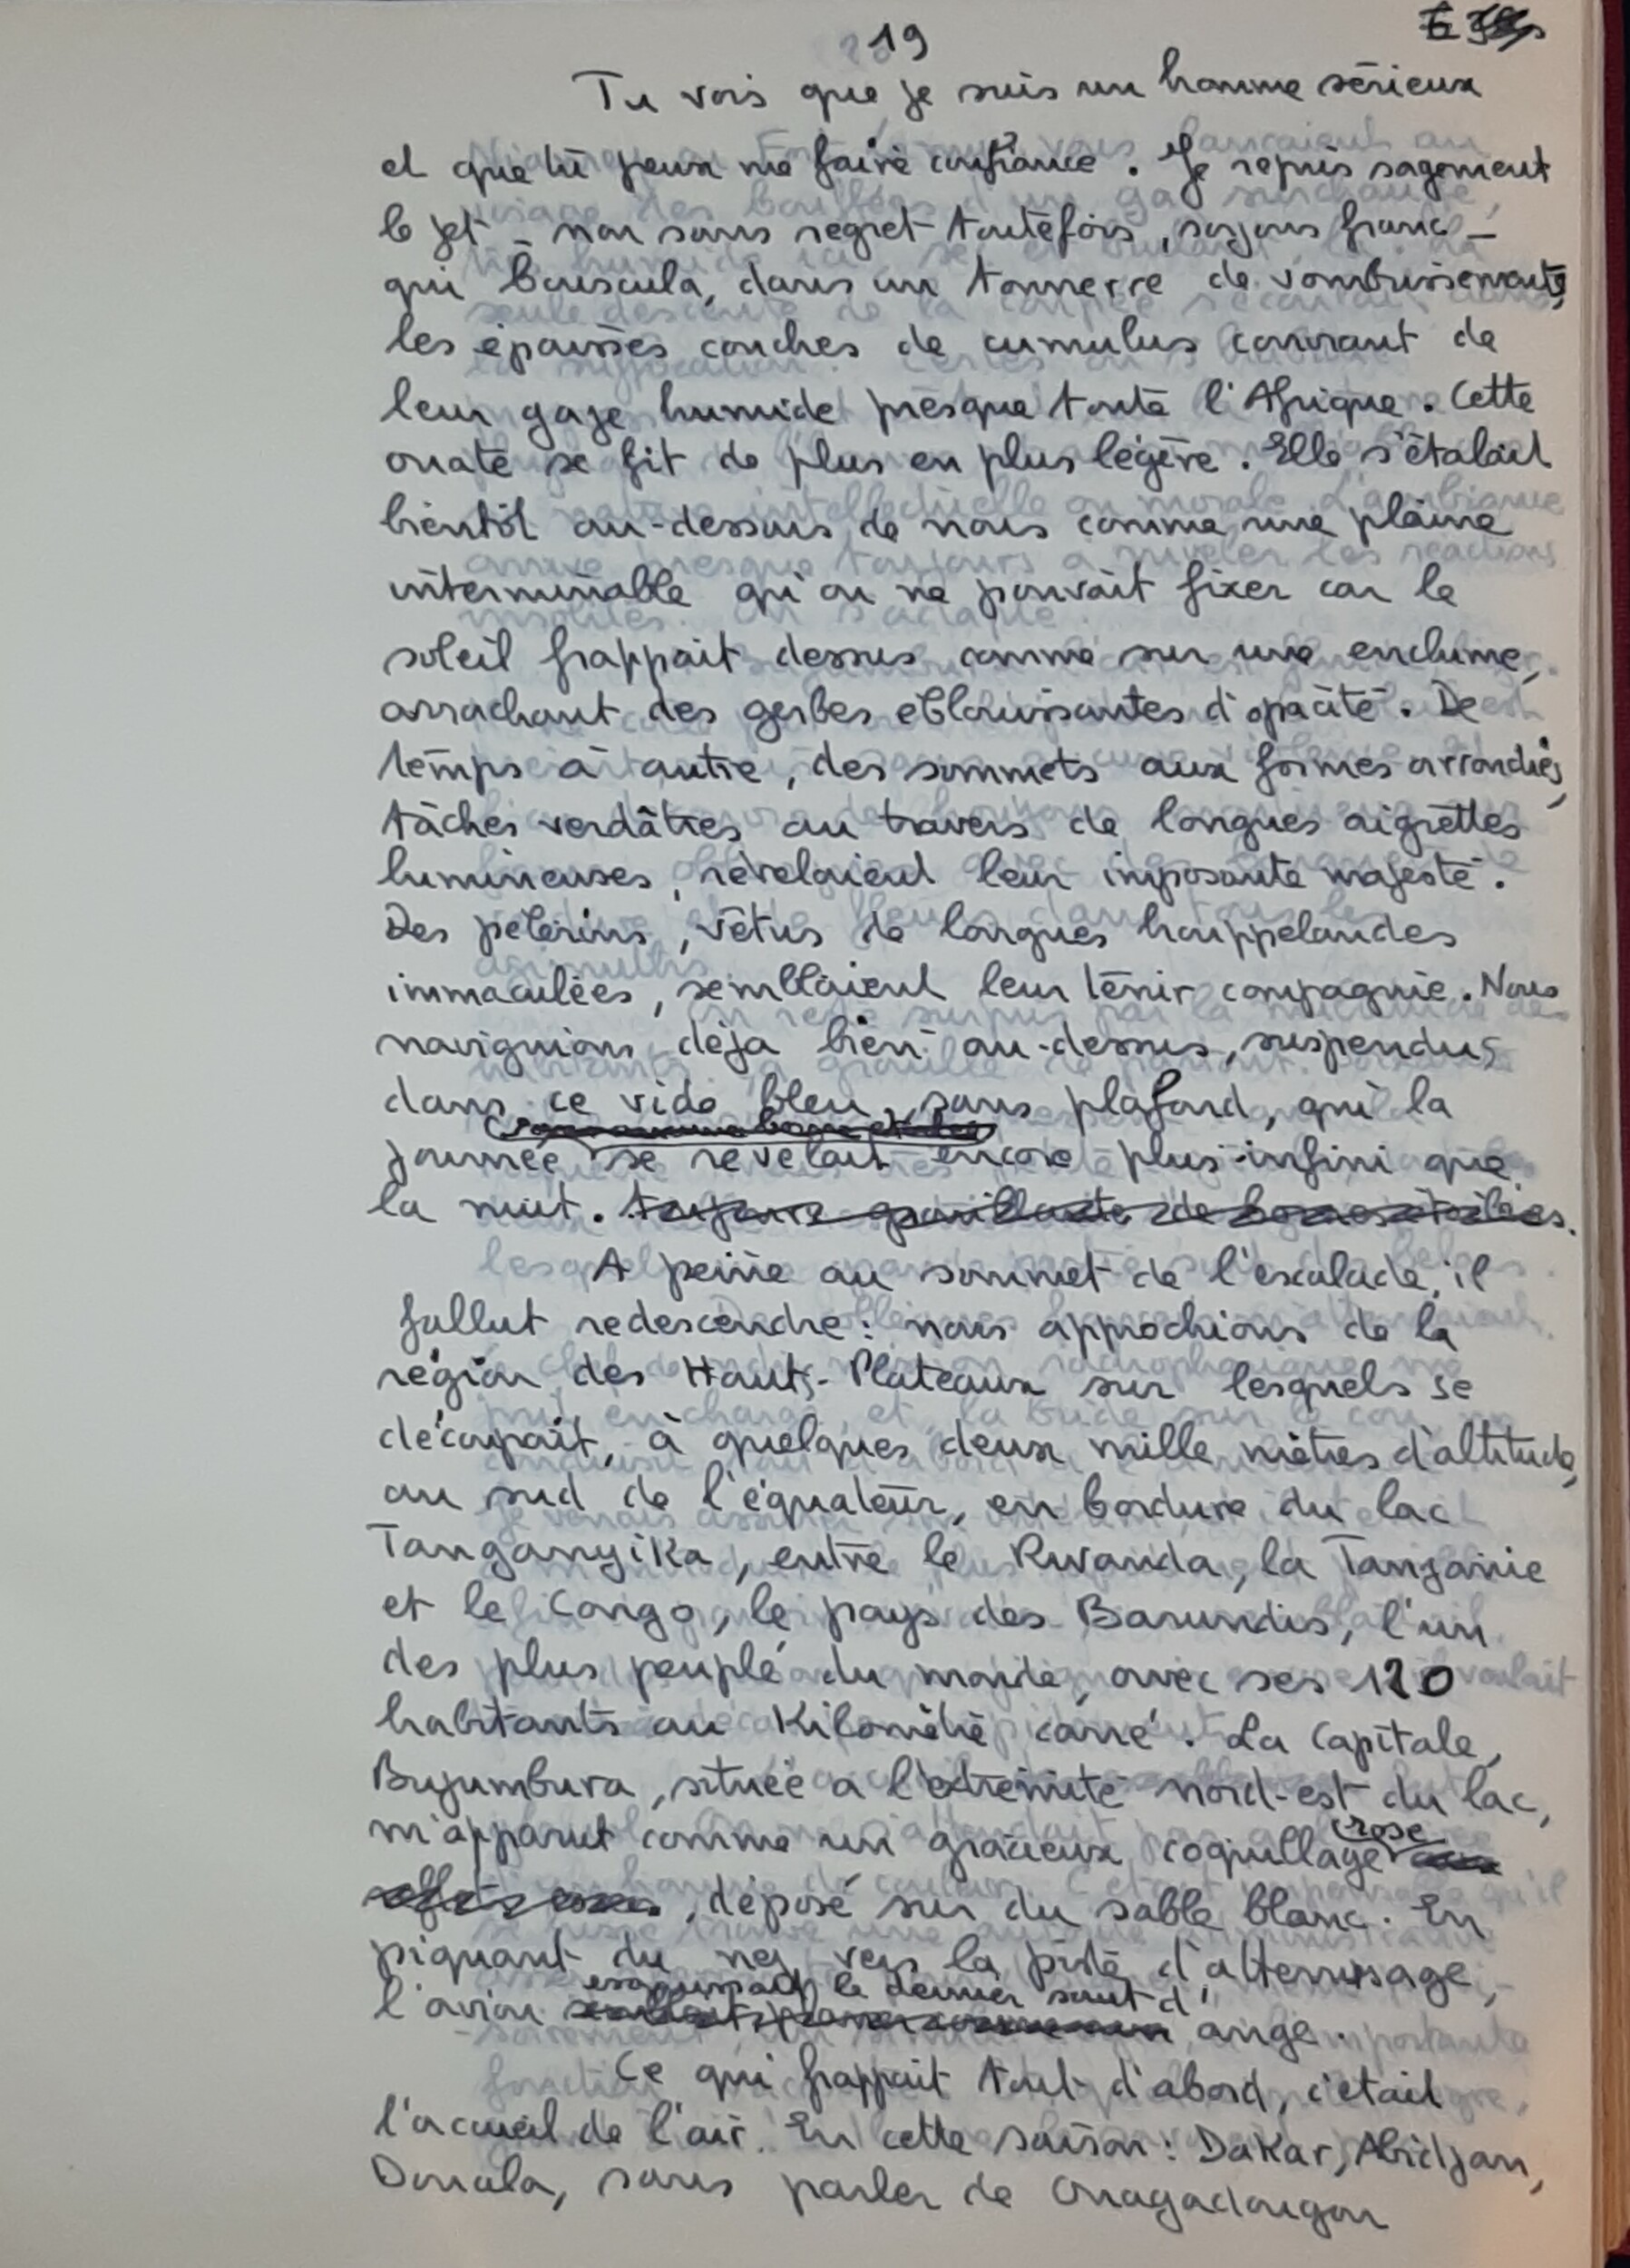 19
Tu vois que je suis un homme sérieux
et que tu peux me faire confiance. Je repris sagement
le jet - non sans regret toutefois, soyons franc -
qui bouscula, dans un tonnerre de vombrissements,
les épaisses couches de cumulus couvrant de
leur gaze humide presque toute l'Afrique. Cette
ouate se fit de plus en plus légère. Elle s'étalait
bientôt au-dessous de nous comme une plaine
interminable qu'on ne pouvait fixer car le
soleil frappait dessus comme sur une enclume,
arrachant des gerbes éblouissantes d'opacité. De
temps à autre, des sommets aux formes arrondies,
tâches verdâtres au travers de longues aigrettes
lumineuses, révelaient leur imposante majesté.
Des pélerins, vêtus de longues houppelandes
immaculées, semblaient leur tenir compagnie. Nous
naviguions déja bien au-dessus, suspendus
dans ce vide bleu, sans plafond, qui la
journée se révelait encore plus infini que
la nuit.
A peine au sommet de l'escalade, il
fallut redescendre : nous approchions de la
région des Hauts-Plateaux sur lesquels se
découpait, à quelques deux mille mètres d'altitude,
au sud de l'équateur, en bordure du lac
Tanganyika, entre le Rwanda, la Tanzanie
et le Congo, le pays des Barundis, l'un
des plus peuplé du monde, avec ses 120
habitants au Kilomètre carré. La Capitale,
Bujumbura, située a l'extrêmité nord-est du lac,
m'apparut comme un gracieux coquillage rose
, déposé sur du sable blanc. En
piquant du nez vers la piste d'atterrissage,
l'avion esquissait le dernier saut d'ange.
Ce qui frappait tout d'abord, c'était
l'accueil de l'air. En cette saison : Dakar, Abidjan,
Douala, sans parler de Ouagadougou